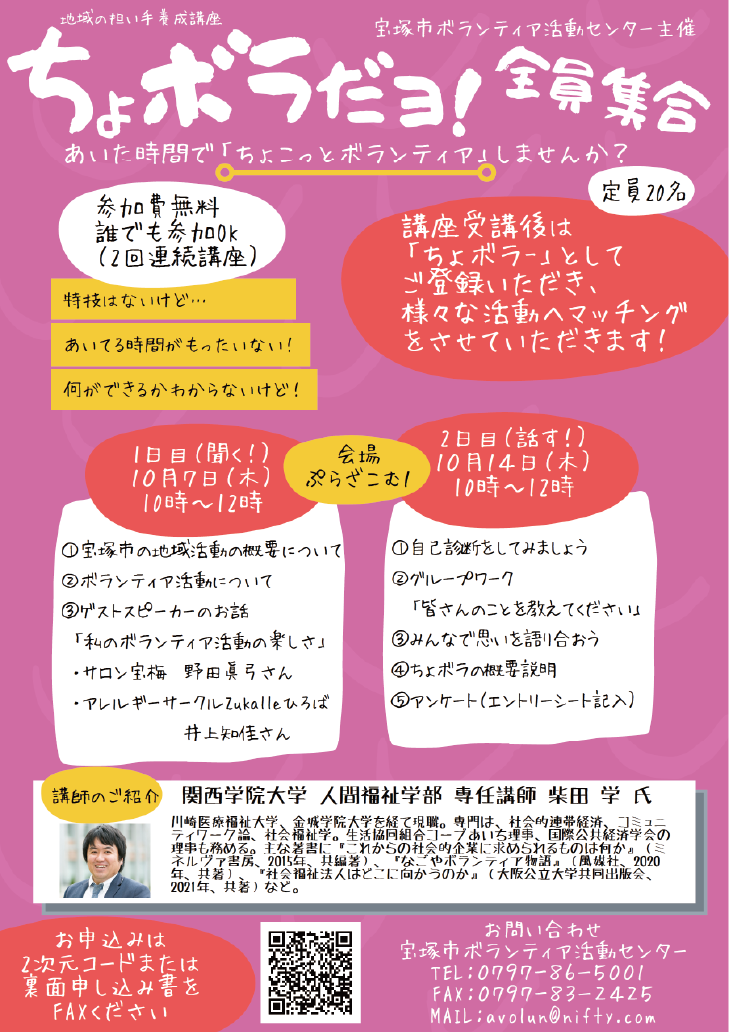 地域の担い手養成講座
宝塚市ボランティア活動センター主催
ちょボラだヨ!全員集合
あいた時間で「ちょこっとボランティア」しませんか?
定員20名
参加費無料
誰でも参加OK
(2回連続講座)
講座受講後は
「ちょボラー」として
ご登録いただき、
様々な活動へマッチング
をさせていただきます!
特技はないけど…
あいてる時間がもったいない!
何ができるかわからないけど!
1日目(聞く!)
10月7日(木)
10時～12時
会場
ぷらざこむ1
2日目(話す!)
10月14日(木)
10時～12時
①宝塚市の地域活動の概要について
②ボランティア活動について
③ゲストスピーカーのお話
「私のボランティア活動の楽しさ」
・サロン宝梅 野田眞弓さん
・アレルギーサークルZukalleひろば
井上知佳さん
①自己診断をしてみましょう
②グループワーク
「皆さんのことを教えてください」
③みんなで思いを語り合おう
④ちょボラの概要説明
⑤アンケート(エントリーシート記入)
講師のご紹介
関西学院大学 人間福祉学部 専任講師 柴田 学 氏
川崎医療福祉大学、金城学院大学を経て現職。専門は、社会的連帯経済、コミュニ
ティワーク論、社会福祉学。生活協同組合コープあいち理事、国際公共経済学会の
理事も務める。主な著書に『これからの社会的企業に求められるものは何か』(ミ
ネルヴァ書房、2015年、共編著)、『なごやボランティア物語』(風媒社、2020
年、共著)、『社会福祉法人はどこに向かうのか』(大阪公立大学共同出版会、
2021年、共著)など。
お申込みは
2次元コードまたは
裏面申し込み書を
FAXください
お問い合わせ
宝塚市ボランティア活動センター
TEL:0797-86-5001
FAX:0797-83-2425
MAIL:avolun@nifty.com